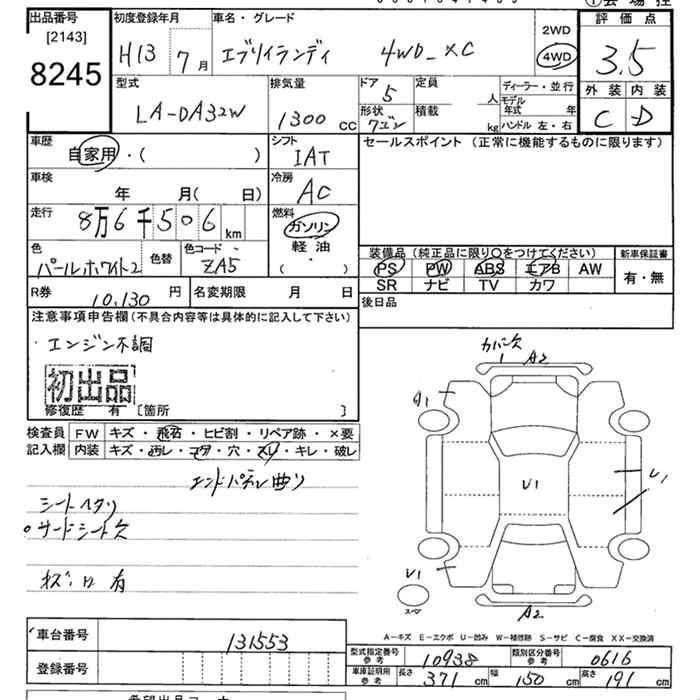 出品番号
[2143]
8245
初度登録年月
H13 7月
車名・グレード
エブリイランディ 4WD_XC
2WD
4WD
評価点
3.5
外装 内装
C D
型式
LA-DA32W
排気量
1300 CC
ドア
5
形状
ワゴン
定員
人
積載
kg
ディーラー・並行
モデル年式 年
ハンドル 左・右
車歴
自家用・( )
シフト
IAT
セールスポイント (正常に機能するものに限ります)
車検
年 月( 日)
冷房
AC
走行
8万6千506km
燃料
ガソリン
軽油
( ・ )
色
パールホワイト2
色替
色コード
ZA5
装備品 (純正品に限り○をつけてください)
PS PW ABS エアB AW
SR ナビ TV カワ
新車保証書
有・無
R券
10,130 円
名変期限 月 日
後日品
注意事項申告欄(不具合内容等は具体的に記入して下さい)
・エンジン不調
初出品
修復歴 有 [箇所 ]
検査員 FW キズ・飛石・ヒビ割・リペア跡・×要
記入欄 内装 キズ・汚レ・コゲ・穴・スレ・キレ・破レ
エンドパネル曲り
シートヘタリ
サードシート欠
カバー欠
A2
A1
U1
U1
U1
スペア
A2
A-キズ E-エクボ U-凹み W-補修跡 S-サビ C-腐食 XX-交換済
車台番号
131553
登録番号
型式指定番号
参考
10938
類別区分番号
参考
0616
車庫証明用
参考
長さ 371 cm
幅 150 cm
高さ 191 cm